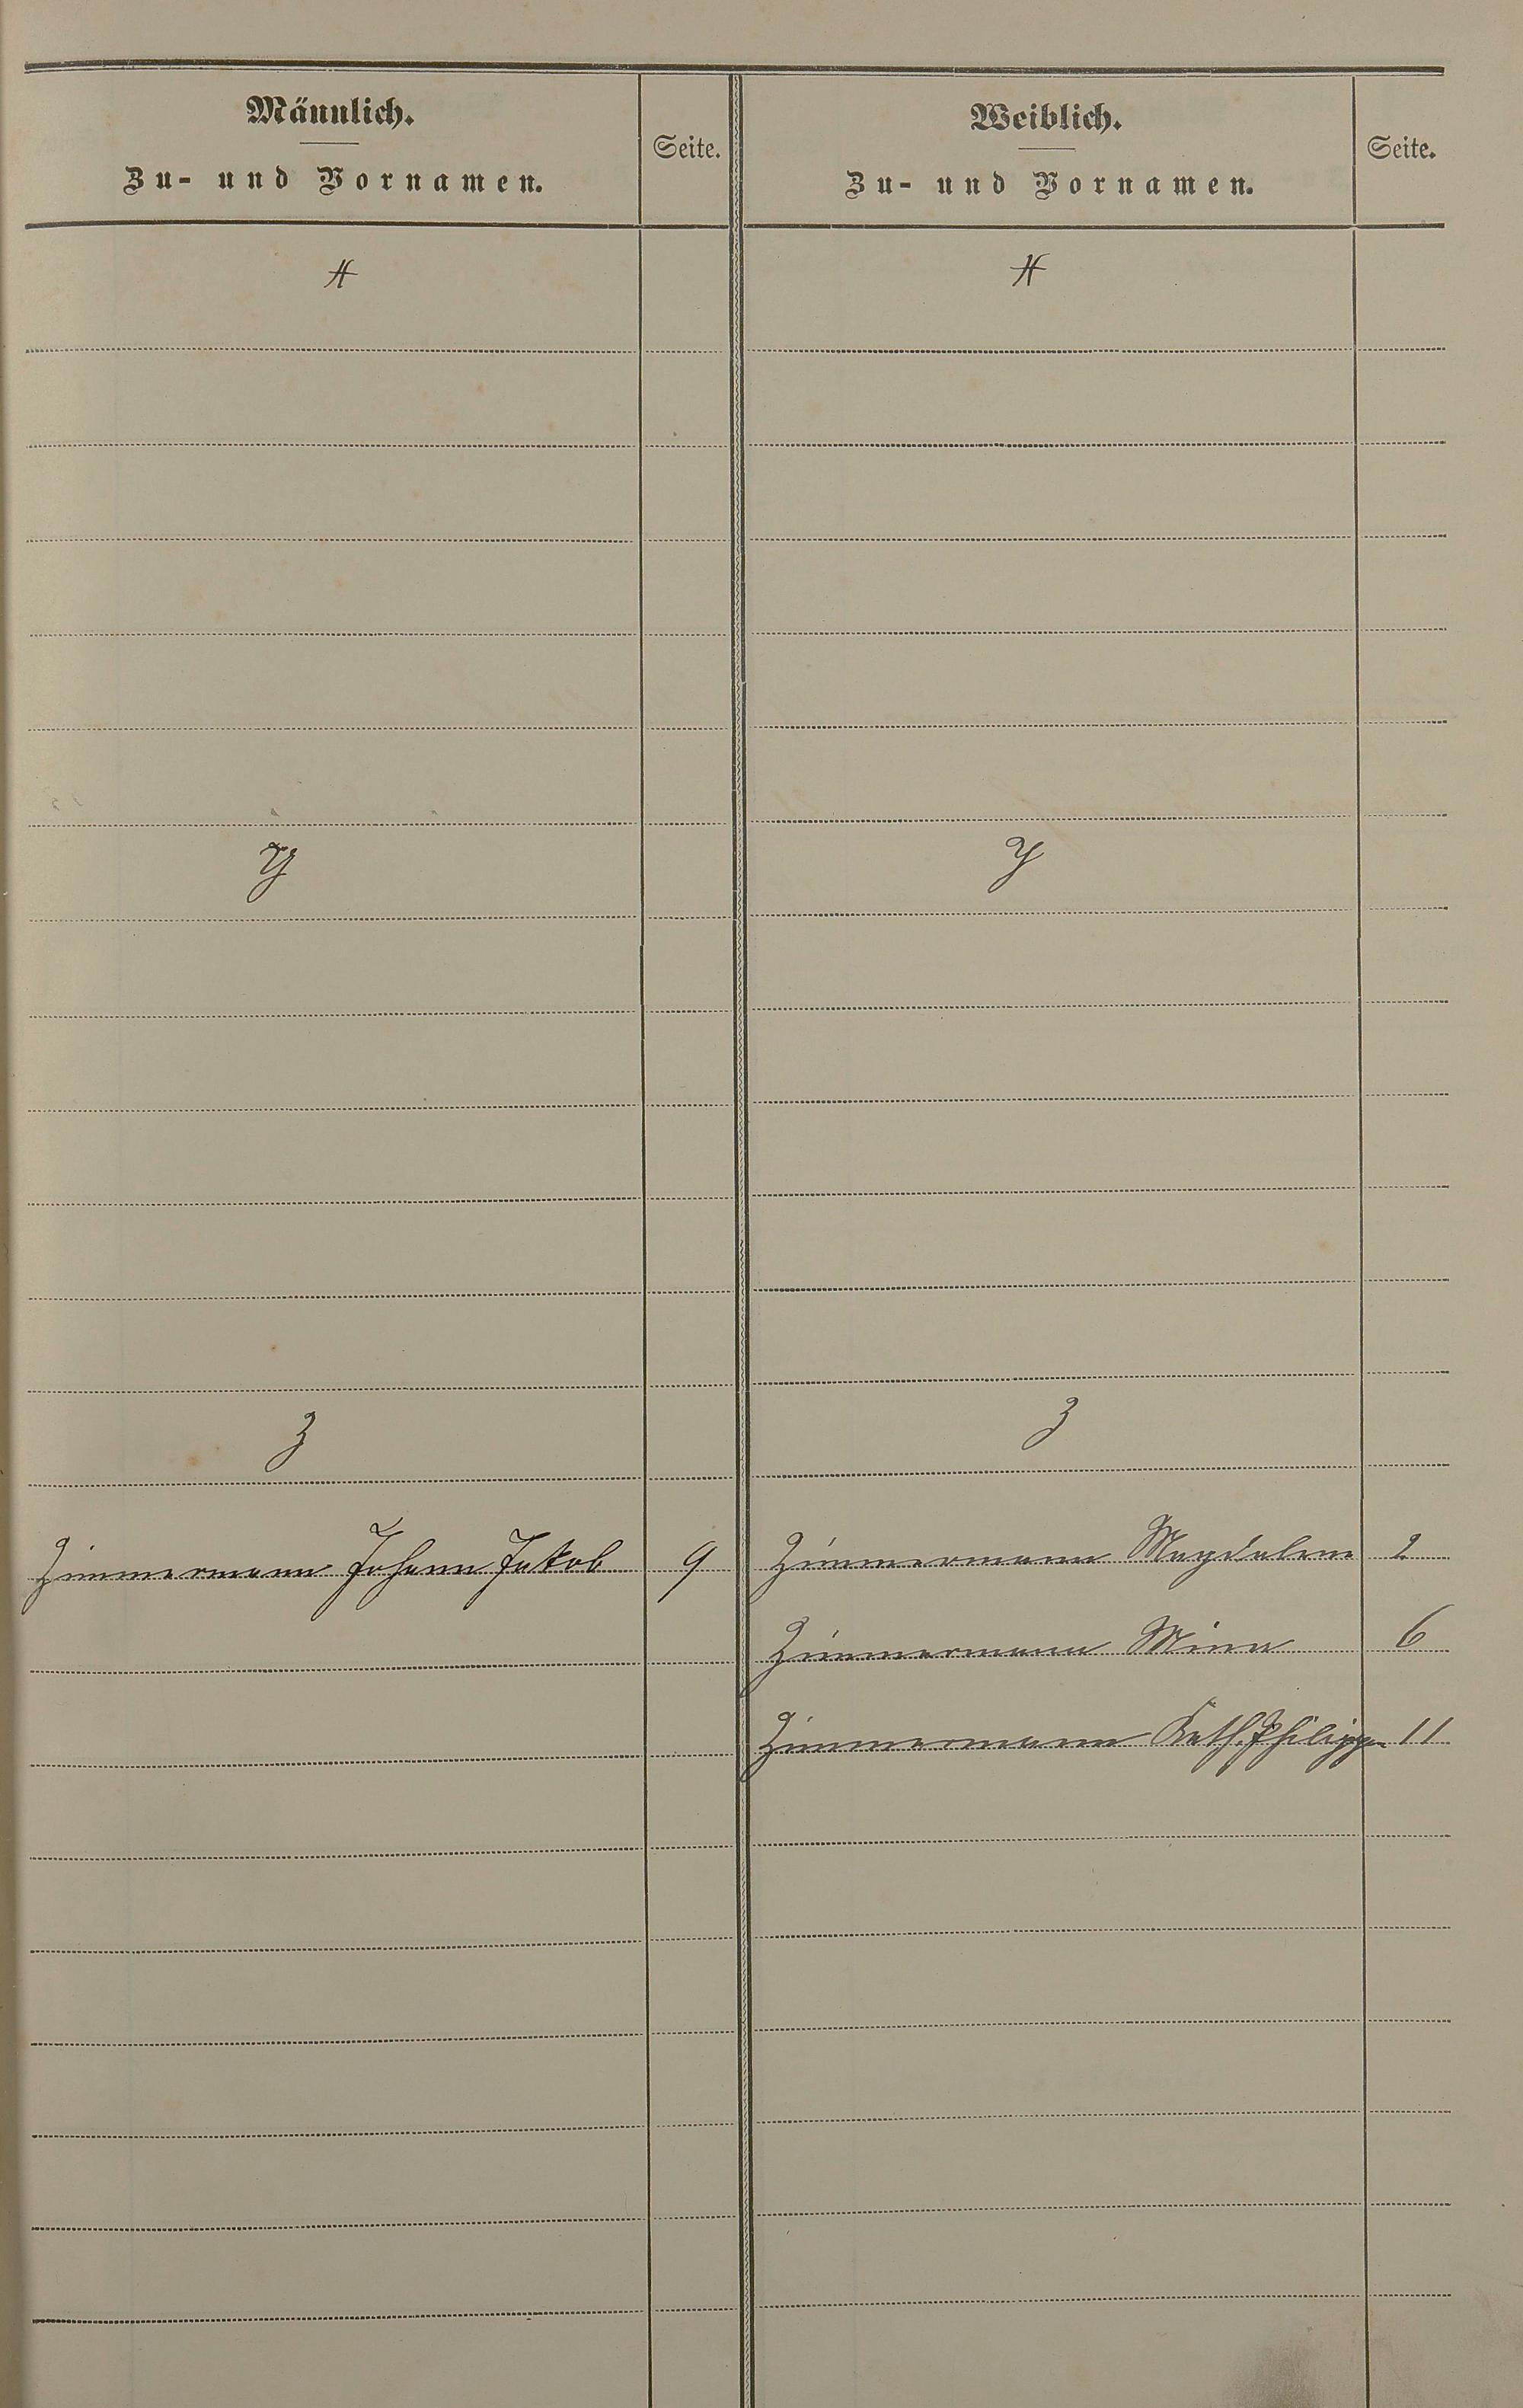 Männlich.
Zu- und Vornamen.
Seite.
Weiblich.
Zu- und Vornamen.
Seite.
X
X
Y
Y
Z
Z
Zimmermann Johann Jakob 9
Zimmermann Magdalena 2
Zimmermann Mina 6
Zimmermann Kath. Philippa 11